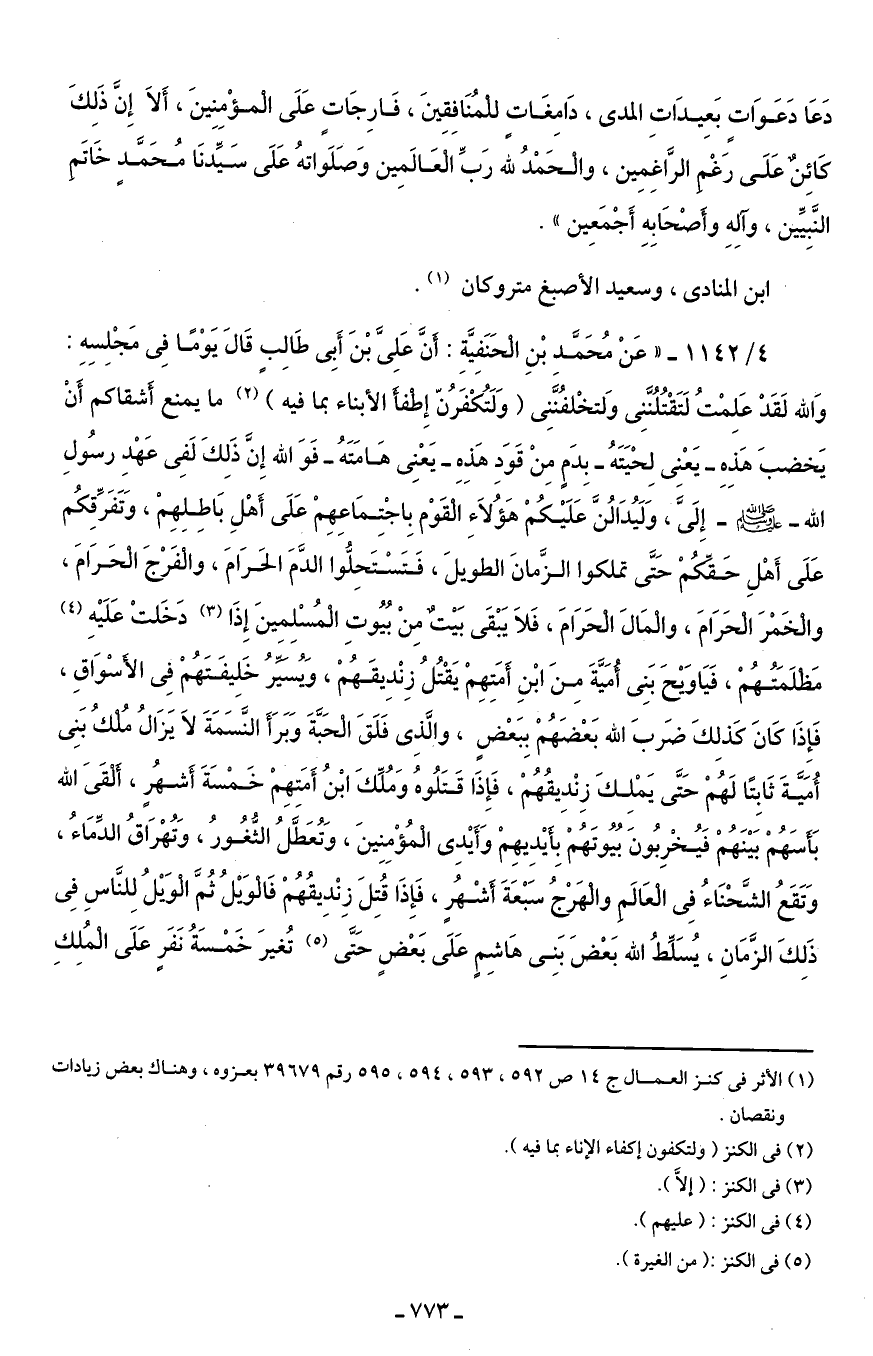 دَعَا دَعَوَاتٍ بَعِيدَاتِ المدى ، دَامِغَاتٍ للْمُنَافِقِينَ ، فَارِجَاتٍ عَلَى الْمؤْمِنِينَ ، أَلاَ إِنَّ ذَلِكَ
كَائِنٌ عَلَى رَغْمِ الرَّاغِمِين ، والْحَمْدُ لله رَبِّ الْعَالَمِين وَصَلَواتهُ عَلَى سَيِّدنَا مُحَمَّدٍ خَاتَمِ
النَّبِيِّين ، وآلِهِ وأَصْحَابِهِ أَجْمَعِين » .
ابن المنادى ، وسعيد الأصبغ متروكان (١) .
٤/ ١١٤٢ ـ « عَنْ مُحَمَّدِ بْنِ الْحَنَفِيَّةِ : أَنَّ عَلِىَّ بْنَ أَبِى طَالِبٍ قَالَ يَوْمًا فِى مَجْلِسِهِ :
وَالله لَقَدْ عَلِمْتُ لَتَقْتُلُنَّنِى وَلَتخْلفُنَّنِى ( وَلَتُكْفَرُنّ إِطْفأَ الأبناء بما فيه ) (٢) ما يمنع أَشقاكم أَنْ
يَخضبَ هَذِهِ ـ يَعْنِى لِحْيَتَهُ ـ بِدَمٍ مِنْ قَوَدِ هَذِهِ ـ يَعْنِى هَامَتَهُ ـ فَوَ الله إِنَّ ذَلِكَ لَفِى عَهْدِ رسُولِ
الله ـ ﷺ ـ إِلَىَّ ، وَلَيُدَالُنَّ عَلَيْكُمْ هَؤُلاَءِ القَوْم بِاجْتِمَاعِهِمْ عَلَى أَهْلِ بَاطِلِهِمْ ، وَتَفَرِّقِكُم
عَلَى أَهْلِ حَقِّكُمْ حَتَّى تملكوا الزَّمانَ الطويلَ ، فَتَسْتَحِلُّوا الدَّمَ الحَرامَ ، والْفَرْجَ الْحَرَامَ ،
والْخَمْرَ الْحَرَامَ ، والمالَ الْحَرَامَ ، فَلاَ يَبْقَى بَيْتٌ مِنْ بُيُوتِ الْمُسْلِمِينَ إِذَا (٣) دَخَلَتْ عَلَيْهِ (٤)
مَظْلَمَتُهُمْ ، فَيَاوَيْحَ بَنِى أُمَيَّةَ مِنَ ابْنِ أَمَتِهِمْ يَقْتُلُ زِنْدِيقَهُمْ ، وَيُسَيِّرُ خَلِيفَتَهُمْ فِى الأَسْوَاقِ ،
فَإِذَا كَانَ كَذلِكَ ضَرَبَ الله بَعْضَهُمْ بِبَعْضٍ ، والَّذِى فَلَقَ الْحَبَّةَ وَبَرَأَ النَّسَمَةَ لاَ يَزَالُ مُلْكُ بَنِى
أُمَيَّةَ ثَابِتًا لَهُمْ حَتَّى يَمْلِكَ زِنْدِيقُهُمْ ، فَإِذَا قَتَلُوهُ وَمُلِّكَ ابْنُ أَمَتِهِمْ خَمْسَةَ أَشهُرٍ ، أَلْقَى الله
بَأْسَهُمْ بَيْنَهُمْ فَيُخْرِبُونَ بُيُوتَهُمْ بِأَيْدِيهِمْ وَأَيْدِى الْمُؤْمِنِينَ ، وَتُعَطَّلُ الثُّغُورُ ، وَتُهْرَاقُ الدِّمَاءُ ،
وَتَقَعُ الشَّحْنَاءُ فِى الْعَالَمِ والْهَرْجُ سَبْعَةَ أَشْهُرٍ ، فَإِذَا قُتِلَ زِنْدِيقُهُمْ فَالْوَيْلُ ثُمَّ الْوَيْلُ لِلنَّاسِ فِى
ذَلِكَ الزَّمَانِ ، يُسَلِّطُ الله بَعْضَ بَنِى هَاشِمٍ عَلَى بَعْضٍ حَتَّى (٥) تُغيرَ خَمْسَةُ نَفَرٍ عَلَى الْمُلِكِ
(١) الأثر فى كنز العمال ج ١٤ ص ٥٩٢ ، ٥٩٣ ، ٥٩٤ ، ٥٩٥ رقم ٣٩٦٧٩ بعزوه ، وهناك بعض زيادات
ونقصان .
(٢) فى الكنز ( ولتكفون إكفاء الإناء بما فيه ).
(٣) فى الكنز : ( إلاَّ ).
(٤) فى الكنز : ( عليهم ).
(٥) فى الكنز :( من الغيرة ).
ـ ٧٧٣ ـ